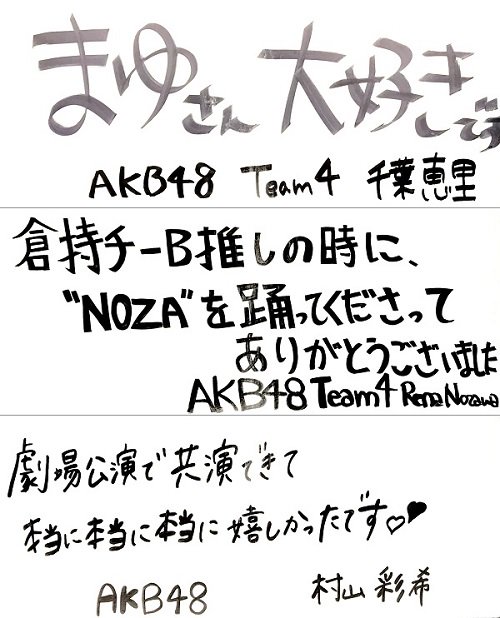 まゆさん 大好きです
AKB48 Team4 千葉恵里
倉持チーB推しの時に、
"NOZA"を踊ってくださって
ありがとうございました
AKB48 Team4 Rena Nozawa
劇場公演で共演できて
本当に本当に本当に嬉しかったです♡♥
AKB48 村山彩希